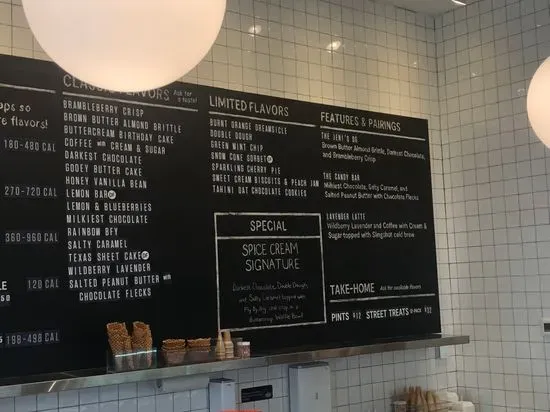 ops so
re flavors!
180-480 CAL
270-720 CAL
360-960 CAL
120 CAL
198-498 CAL
CLASSIC FLAVORS
Ask for
a taste!
BRAMBLEBERRY CRISP
BROWN BUTTER ALMOND BRITTLE
BUTTERCREAM BIRTHDAY CAKE
COFFEE WITH CREAM & SUGAR
DARKEST CHOCOLATE
GOOEY BUTTER CAKE
HONEY VANILLA BEAN
LEMON BAR DF
LEMON & BLUEBERRIES
MILKIEST CHOCOLATE
RAINBOW BFY
SALTY CARAMEL
TEXAS SHEET CAKE DF
WILDBERRY LAVENDER
SALTED PEANUT BUTTER WITH
CHOCOLATE FLECKS
LIMITED FLAVORS
BURNT ORANGE DREAMSICLE
DOUBLE DOUGH
GREEN MINT CHIP
SNOW CONE SORBET DF
SPARKLING CHERRY PIE
SWEET CREAM BISCUITS & PEACH JAM
TAHINI OAT CHOCOLATE COOKIES
SPECIAL
SPICE CREAM
SIGNATURE
Darkest Chocolate, Double Dough,
and Salty Caramel topped with
Fly By Jing chili crisp in a
Buttercrisp Waffle Bowl
FEATURES & PAIRINGS
THE JENI'S OG
Brown Butter Almond Brittle, Darkest Chocolate,
and Brambleberry Crisp
THE CANDY BAR
Milkiest Chocolate, Salty Caramel, and
Salted Peanut Butter with Chocolate Flecks
LAVENDER LATTE
Wildberry Lavender and Coffee with Cream &
Sugar topped with Slingshot cold brew
TAKE-HOME Ask for available flavors
PINTS $12 STREET TREATS 12-PACK $12